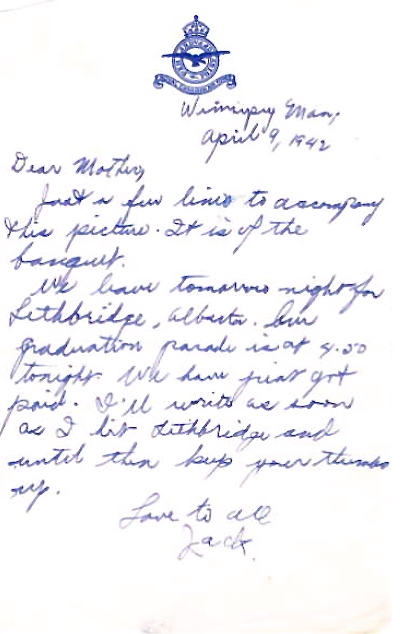 Winnipeg Man,
April 9, 1942
Dear Mother,
Just a few lines to accompany
this picture. It is of the
banquet.
We leave tomorrow night for
Lethbridge, Alberta. Our
graduation parade is at 4.50
tonight. We have just got
paid. I'll write as soon
as I hit Lethbridge and
until then keep your thumbs
up.
Love to all
Jack.